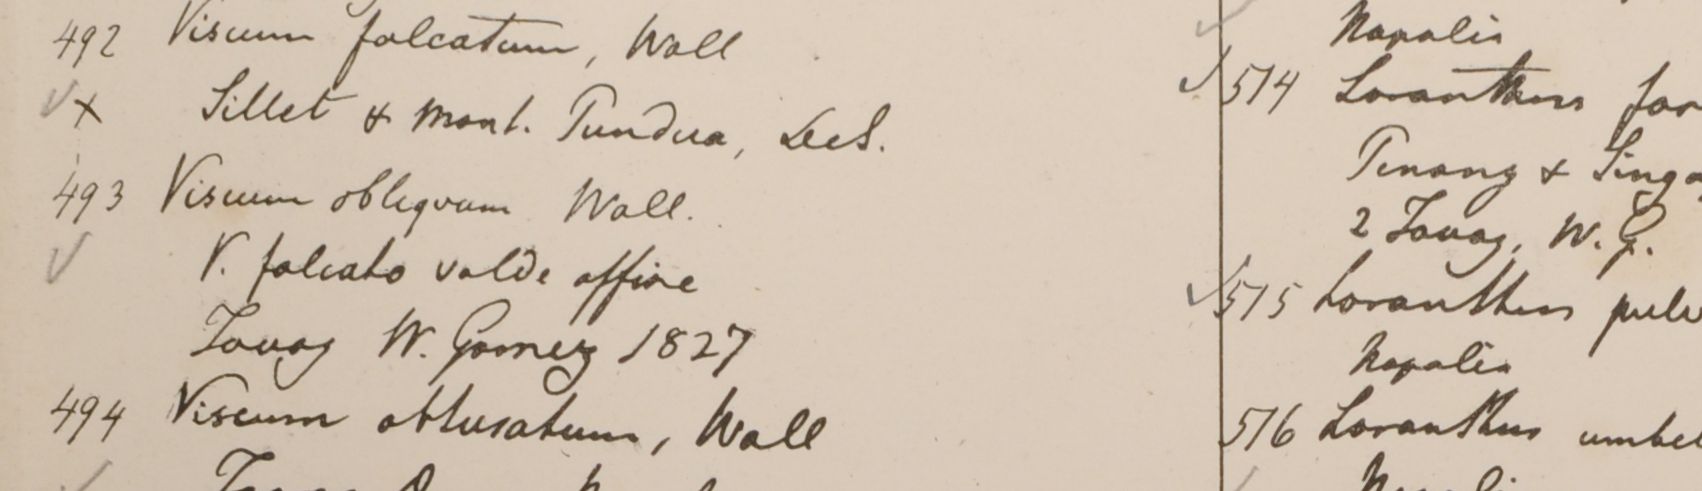 492 Viscum falcatum, Wall
x Sillet & Mont. Pundua, DeS.
493 Viscum obliquum Wall.
V. falcato valde affine
Tavoy W. Gomez 1827
494 Viscum obtusatum, Wall
Napalia
514 Loranthus
Penang &
2 Tavoy, W. G.
515 Loranthus
Napalia
516 Loranthus umbel